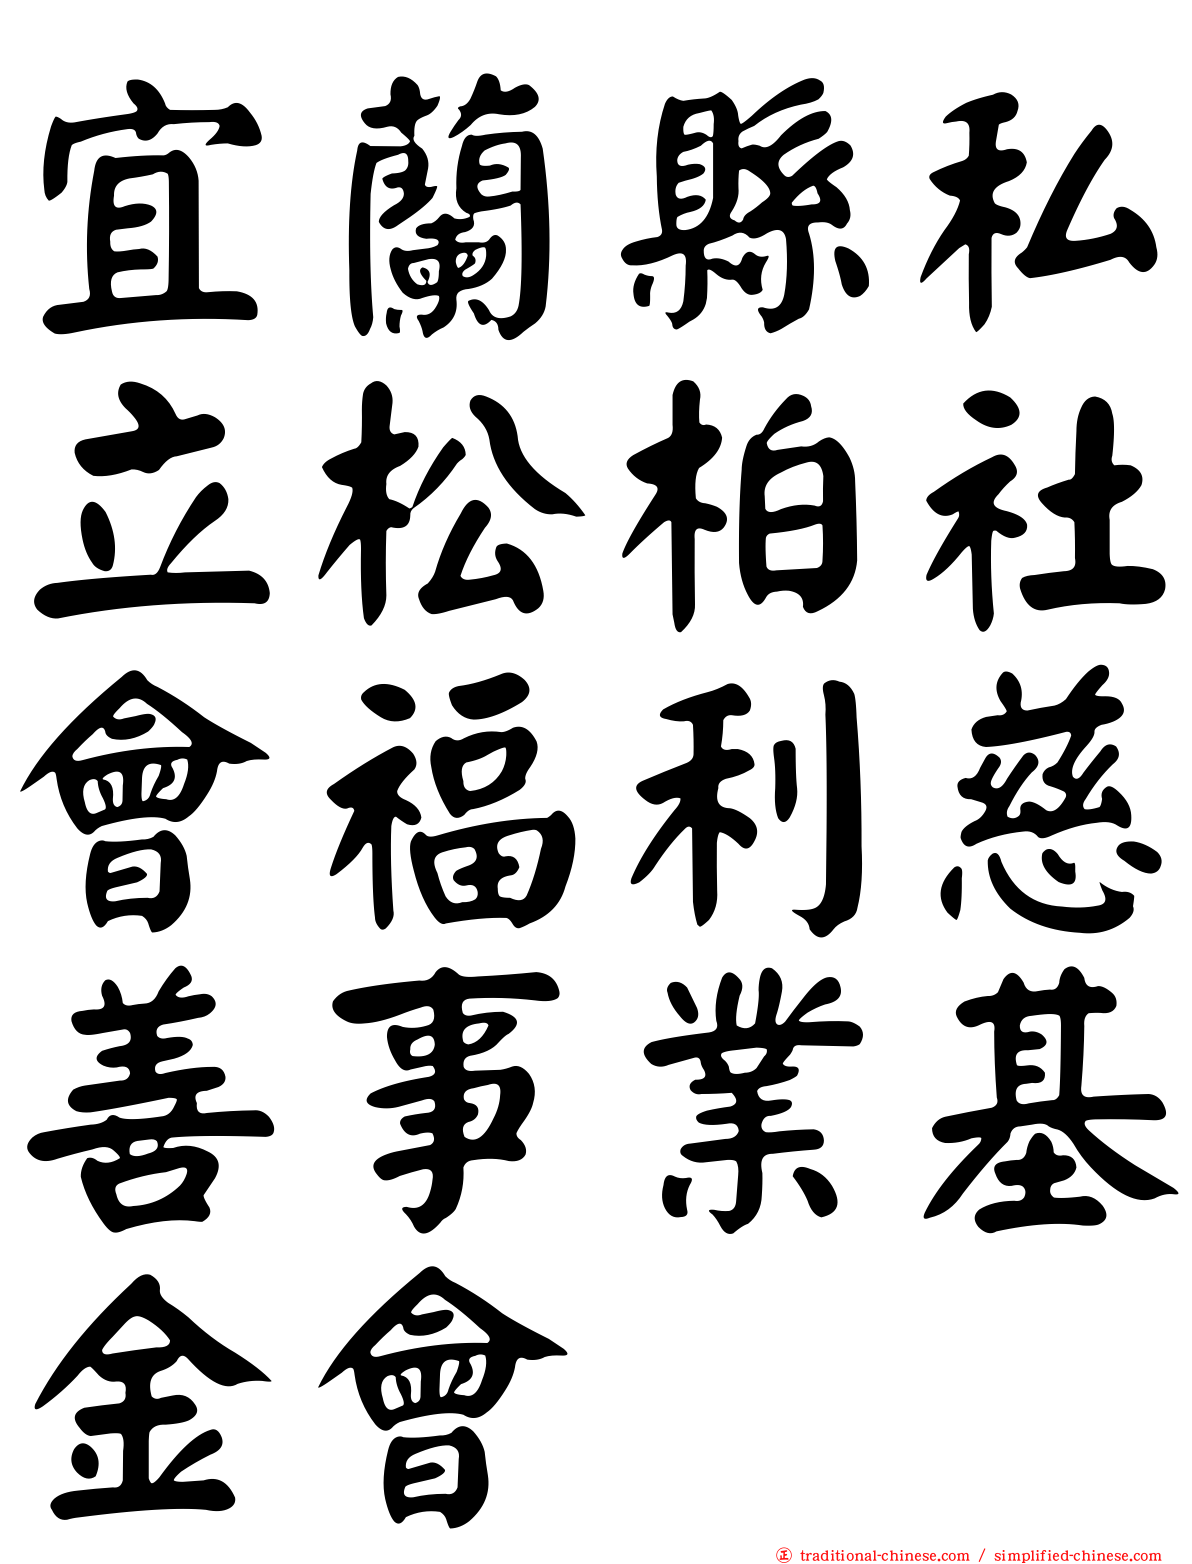 宜蘭縣私
立松柏社
會福利慈
善事業基
金會
正 traditional-chinese.com / simplified-chinese.com